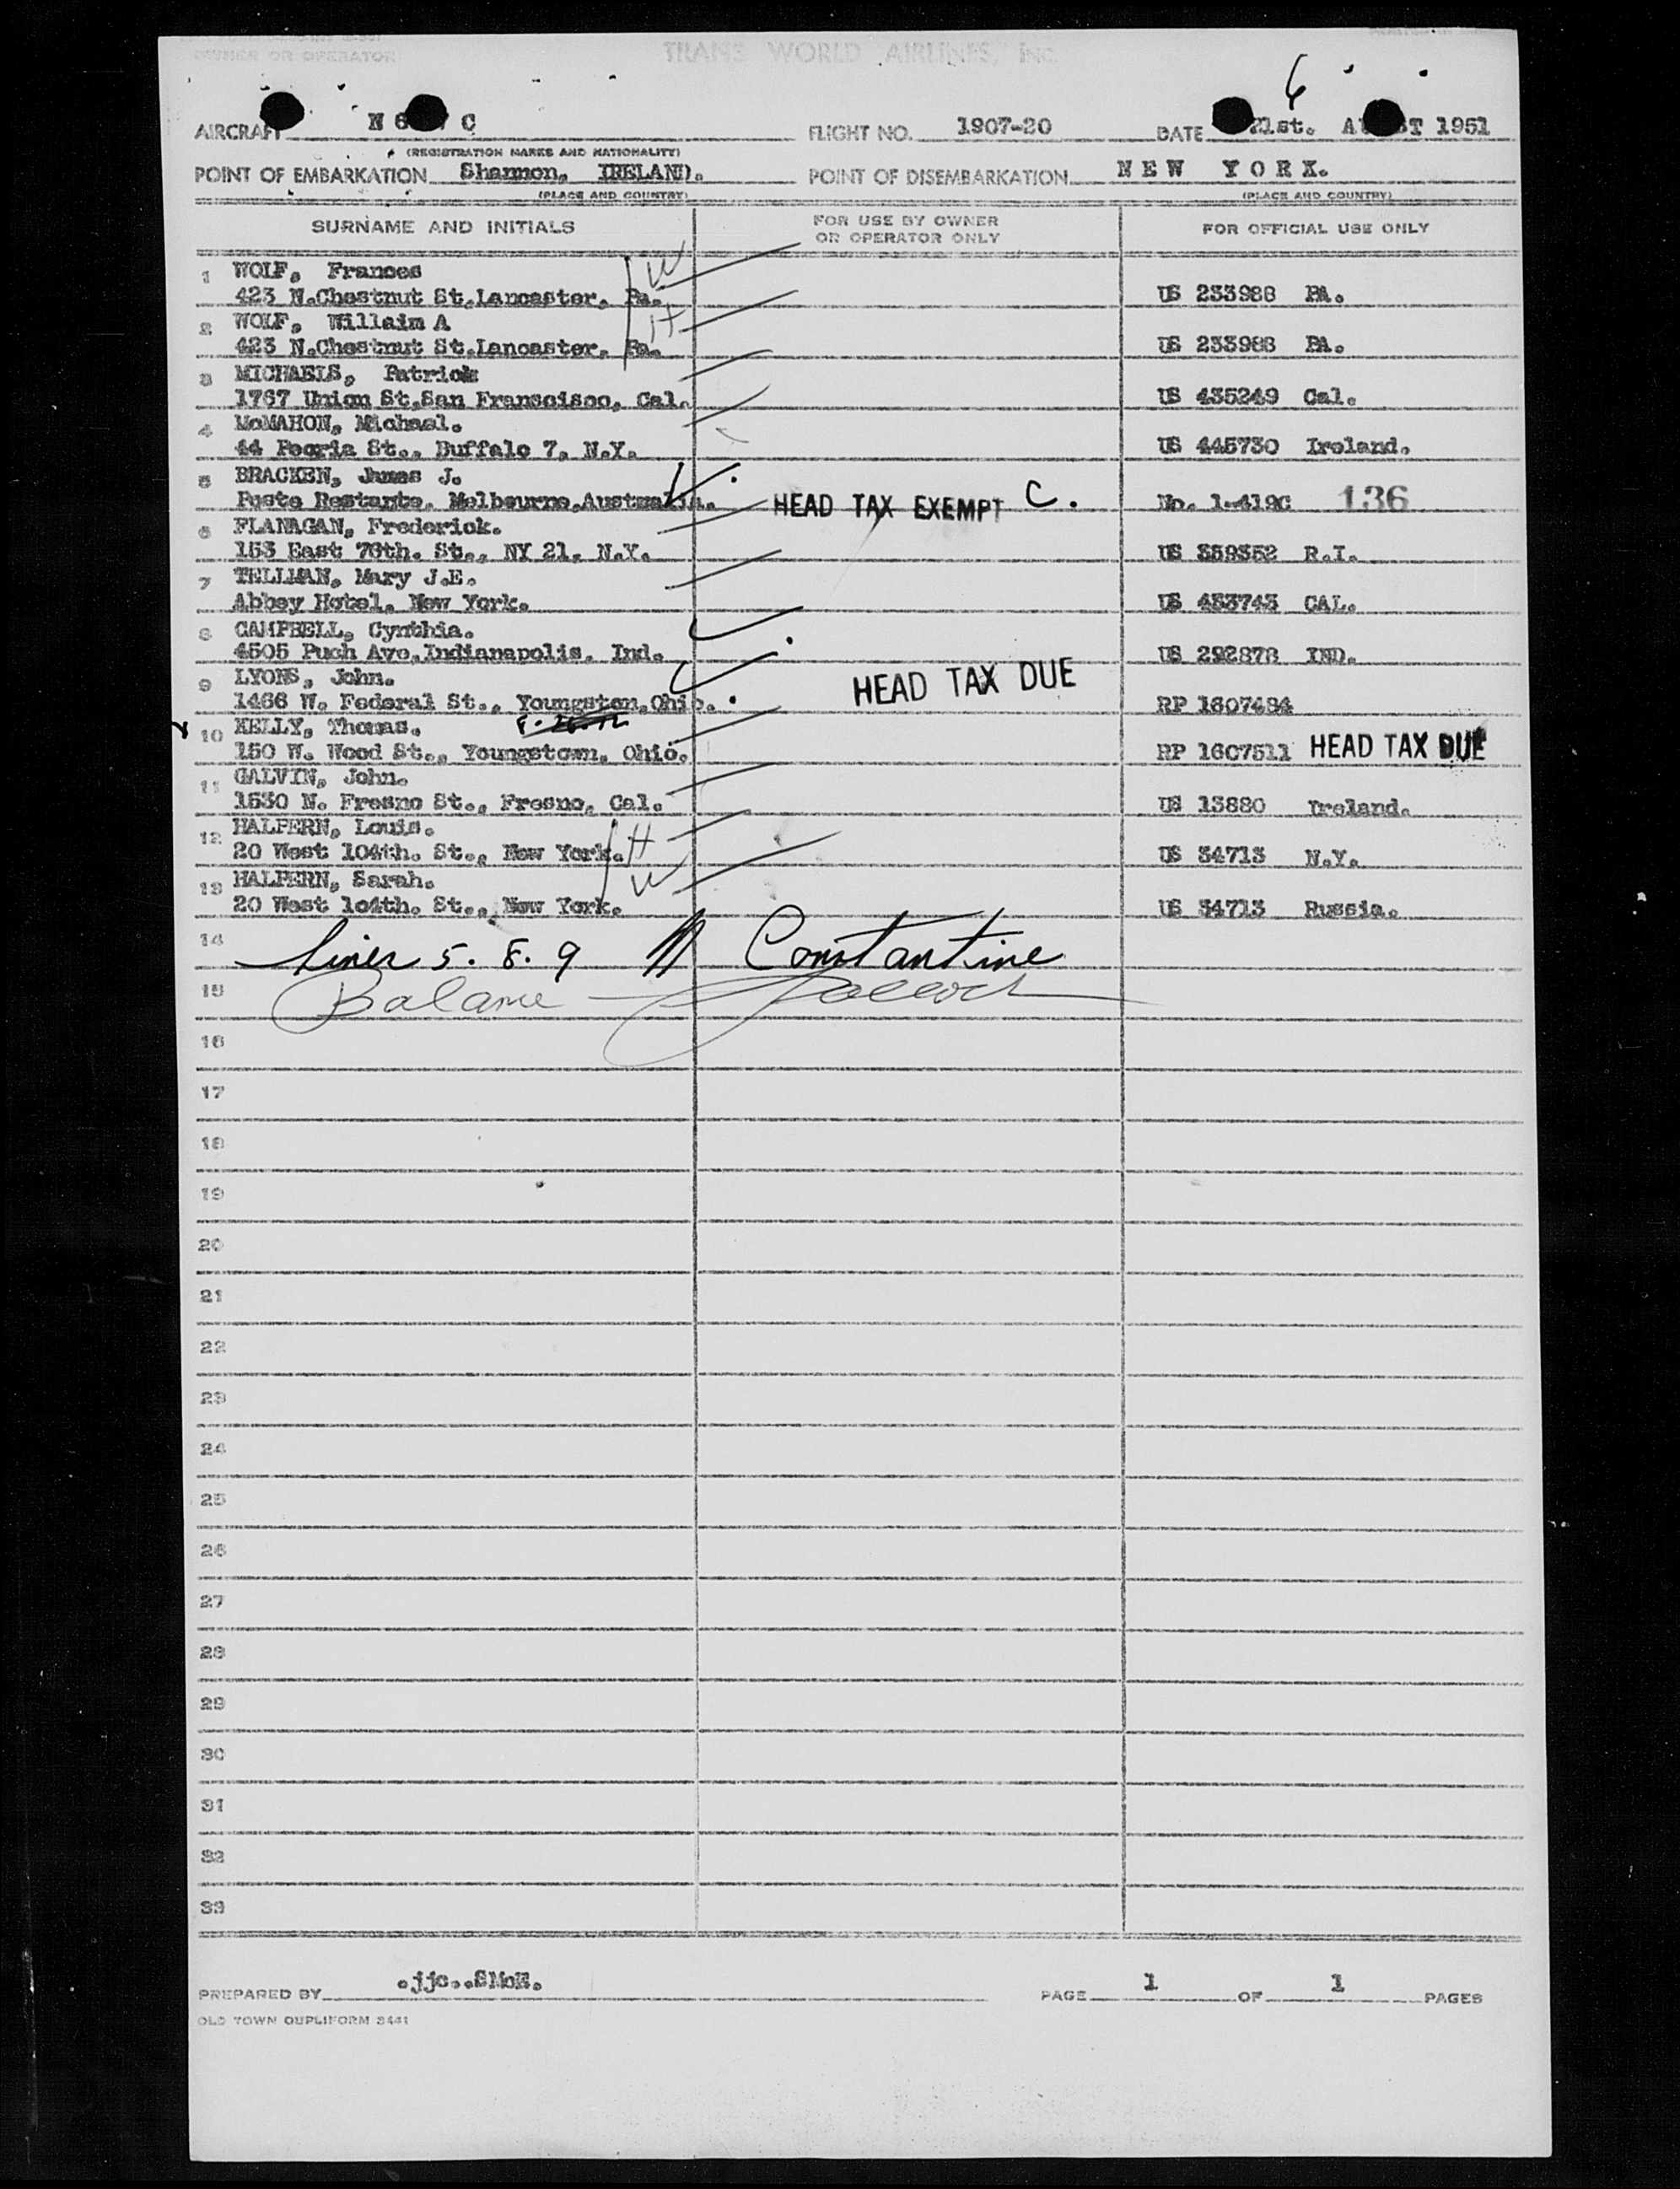 OWNER OR OPERATOR TRANS WORLD AIRLINES, INC.
6
AIRCRAFT N 6 C FLIGHT NO. 1907-20 DATE 21st. A T 1951
(REGISTRATION MARKS AND NATIONALITY)
POINT OF EMBARKATION Shannon, IRELAND. POINT OF DISEMBARKATION NEW YORK.
(PLACE AND COUNTRY) (PLACE AND COUNTRY)
SURNAME AND INITIALS FOR USE BY OWNER OR OPERATOR ONLY FOR OFFICIAL USE ONLY
1 WOLF, Frances W
423 N.Chestnut St.Lancaster, Pa. US 233988 PA.
2 WOLF, Willaim A H
423 N.Chestnut St.Lancaster, Pa. US 233988 PA.
3 MICHAELS, Patrick
1767 Union St,San Franscisco, Cal. US 435249 Cal.
4 McMAHON, Michael.
44 Peoria St., Buffalo 7, N.Y. US 445730 Ireland.
5 BRACKEN, James J.
Poste Restante, Melbourne,Australia. HEAD TAX EXEMPT C. No. 1-419C 136
6 FLANAGAN, Frederick.
153 East 76th. St., NY 21, N.Y. US 359352 R.I.
7 TELLMAN, Mary J.E.
Abbey Hotel, New York. US 453743 CAL.
8 CAMPBELL, Cynthia.
4505 Ave,Indianapolis, Ind. US 292878 IND.
9 LYONS, John.
1466 W. Federal St., Youngston,Ohio. HEAD TAX DUE RP 1607484
10 KELLY, Thomas.
150 W. Wood St., Youngstown, Ohio. RP 1607511 HEAD TAX DUE
11 GALVIN, John.
1530 N. Fresno St., Fresno, Cal. US 13880 Ireland.
12 HALPERN, Louis. H
20 West 104th. St., New York. US 34713 N.Y.
13 HALPERN, Sarah. W
20 West 104th. St., New York. US 34713 Russia.
14 Lines 5. 8. 9 Constantine
15 Balance
16
17
18
19
20
21
22
23
24
25
26
27
28
29
30
31
32
33
PREPARED BY .jjc..SMcM. PAGE 1 OF 1 PAGES
OLD TOWN DUPLIFORM 3441